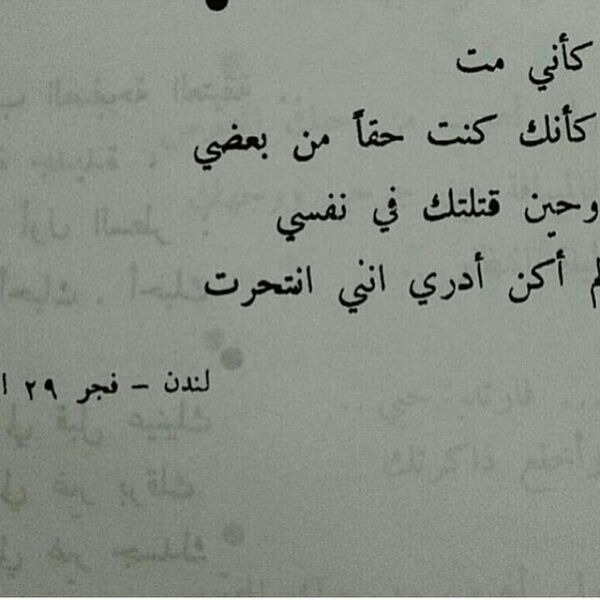 كأني مت
كأنك كنت حقاً من بعضي
وحين قتلتك في نفسي
لم أكن أدري انني انتحرت
لندن - فجر ٢٩